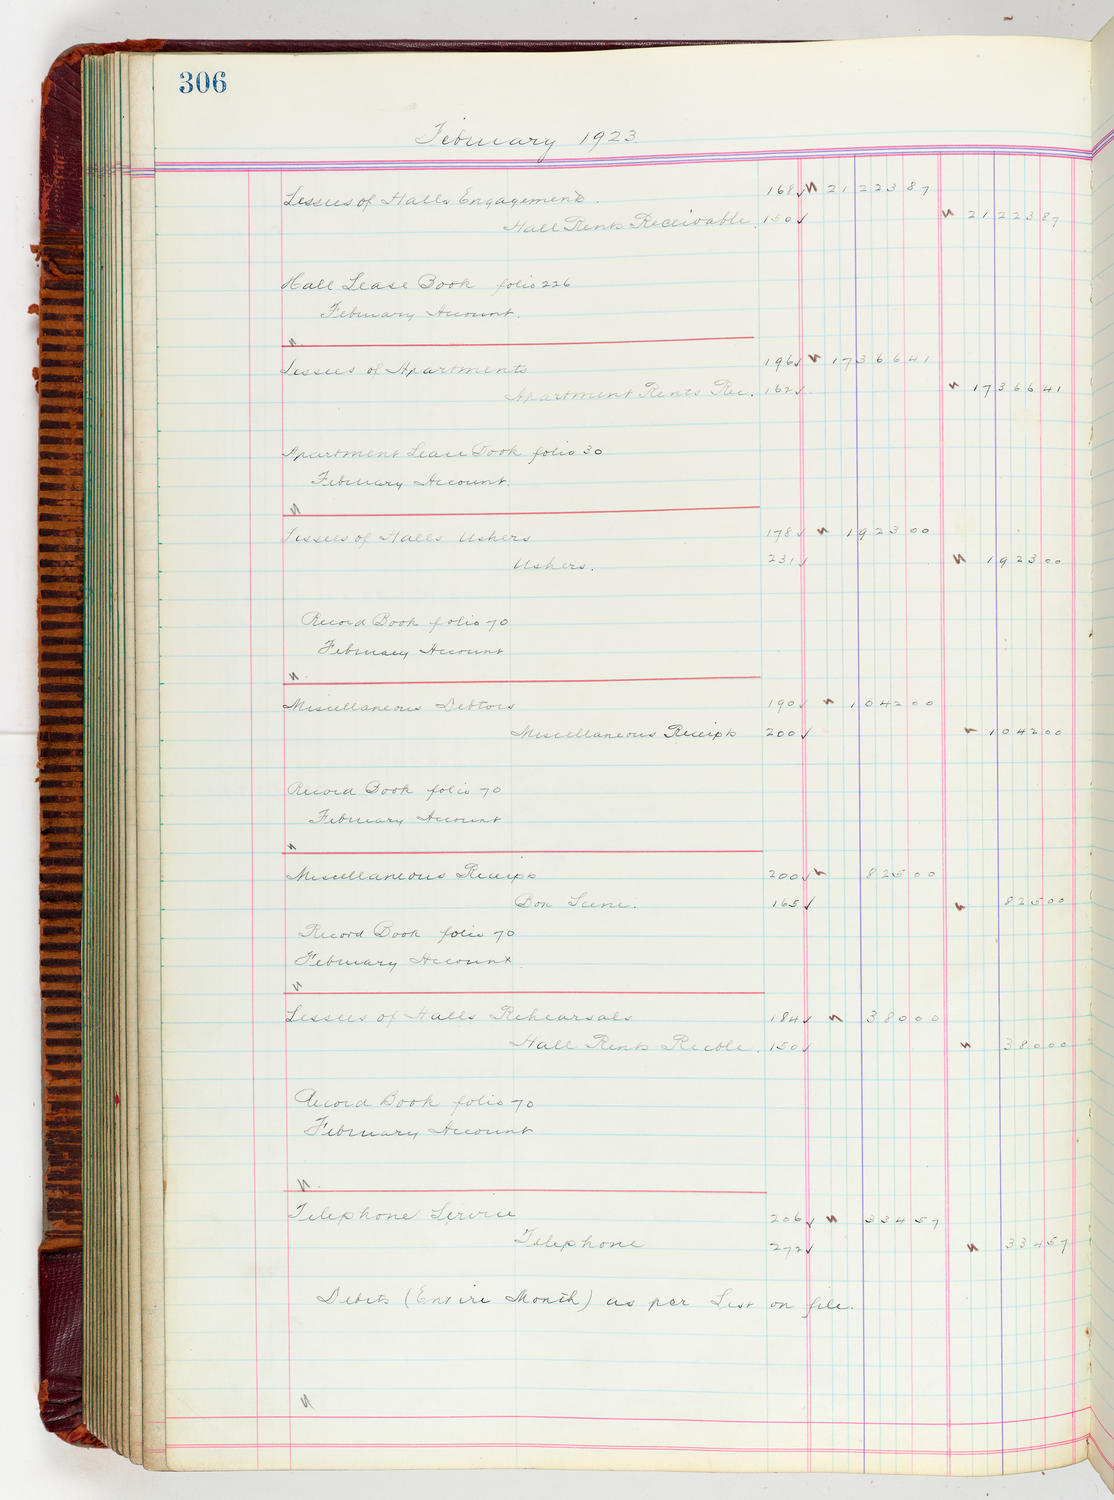 306
February 1923.
Lessees of Halls Engagement. 168 ✓ 21 223 87
Hall Rents Receivable. 150 ✓ 21 223 87
Hall Lease Book folio 226
February Account.
Lessees of Apartments 196 ✓ 17 366 41
Apartment Rents Rec. 162 ✓ 17 366 41
Apartment Lease Book folio 30
February Account.
Lessees of Halls Ushers 178 ✓ 1 923 00
Ushers. 231 ✓ 1 923 00
Record Book folio 70
February Account
Miscellaneous Debtors 190 ✓ 1 042 00
Miscellaneous Receipts 200 ✓ 1 042 00
Record Book folio 70
February Account
Miscellaneous Receipts 200 ✓ 825 00
Box Scene. 165 ✓ 825 00
Record Book folio 70
February Account
Lessees of Halls Rehearsals 184 ✓ 380 00
Hall Rents Recble. 150 ✓ 380 00
Record Book folio 70
February Account
Telephone Service 206 ✓ 334 57
Telephone 272 ✓ 334 57
Debits (Entire Month) as per List on file.